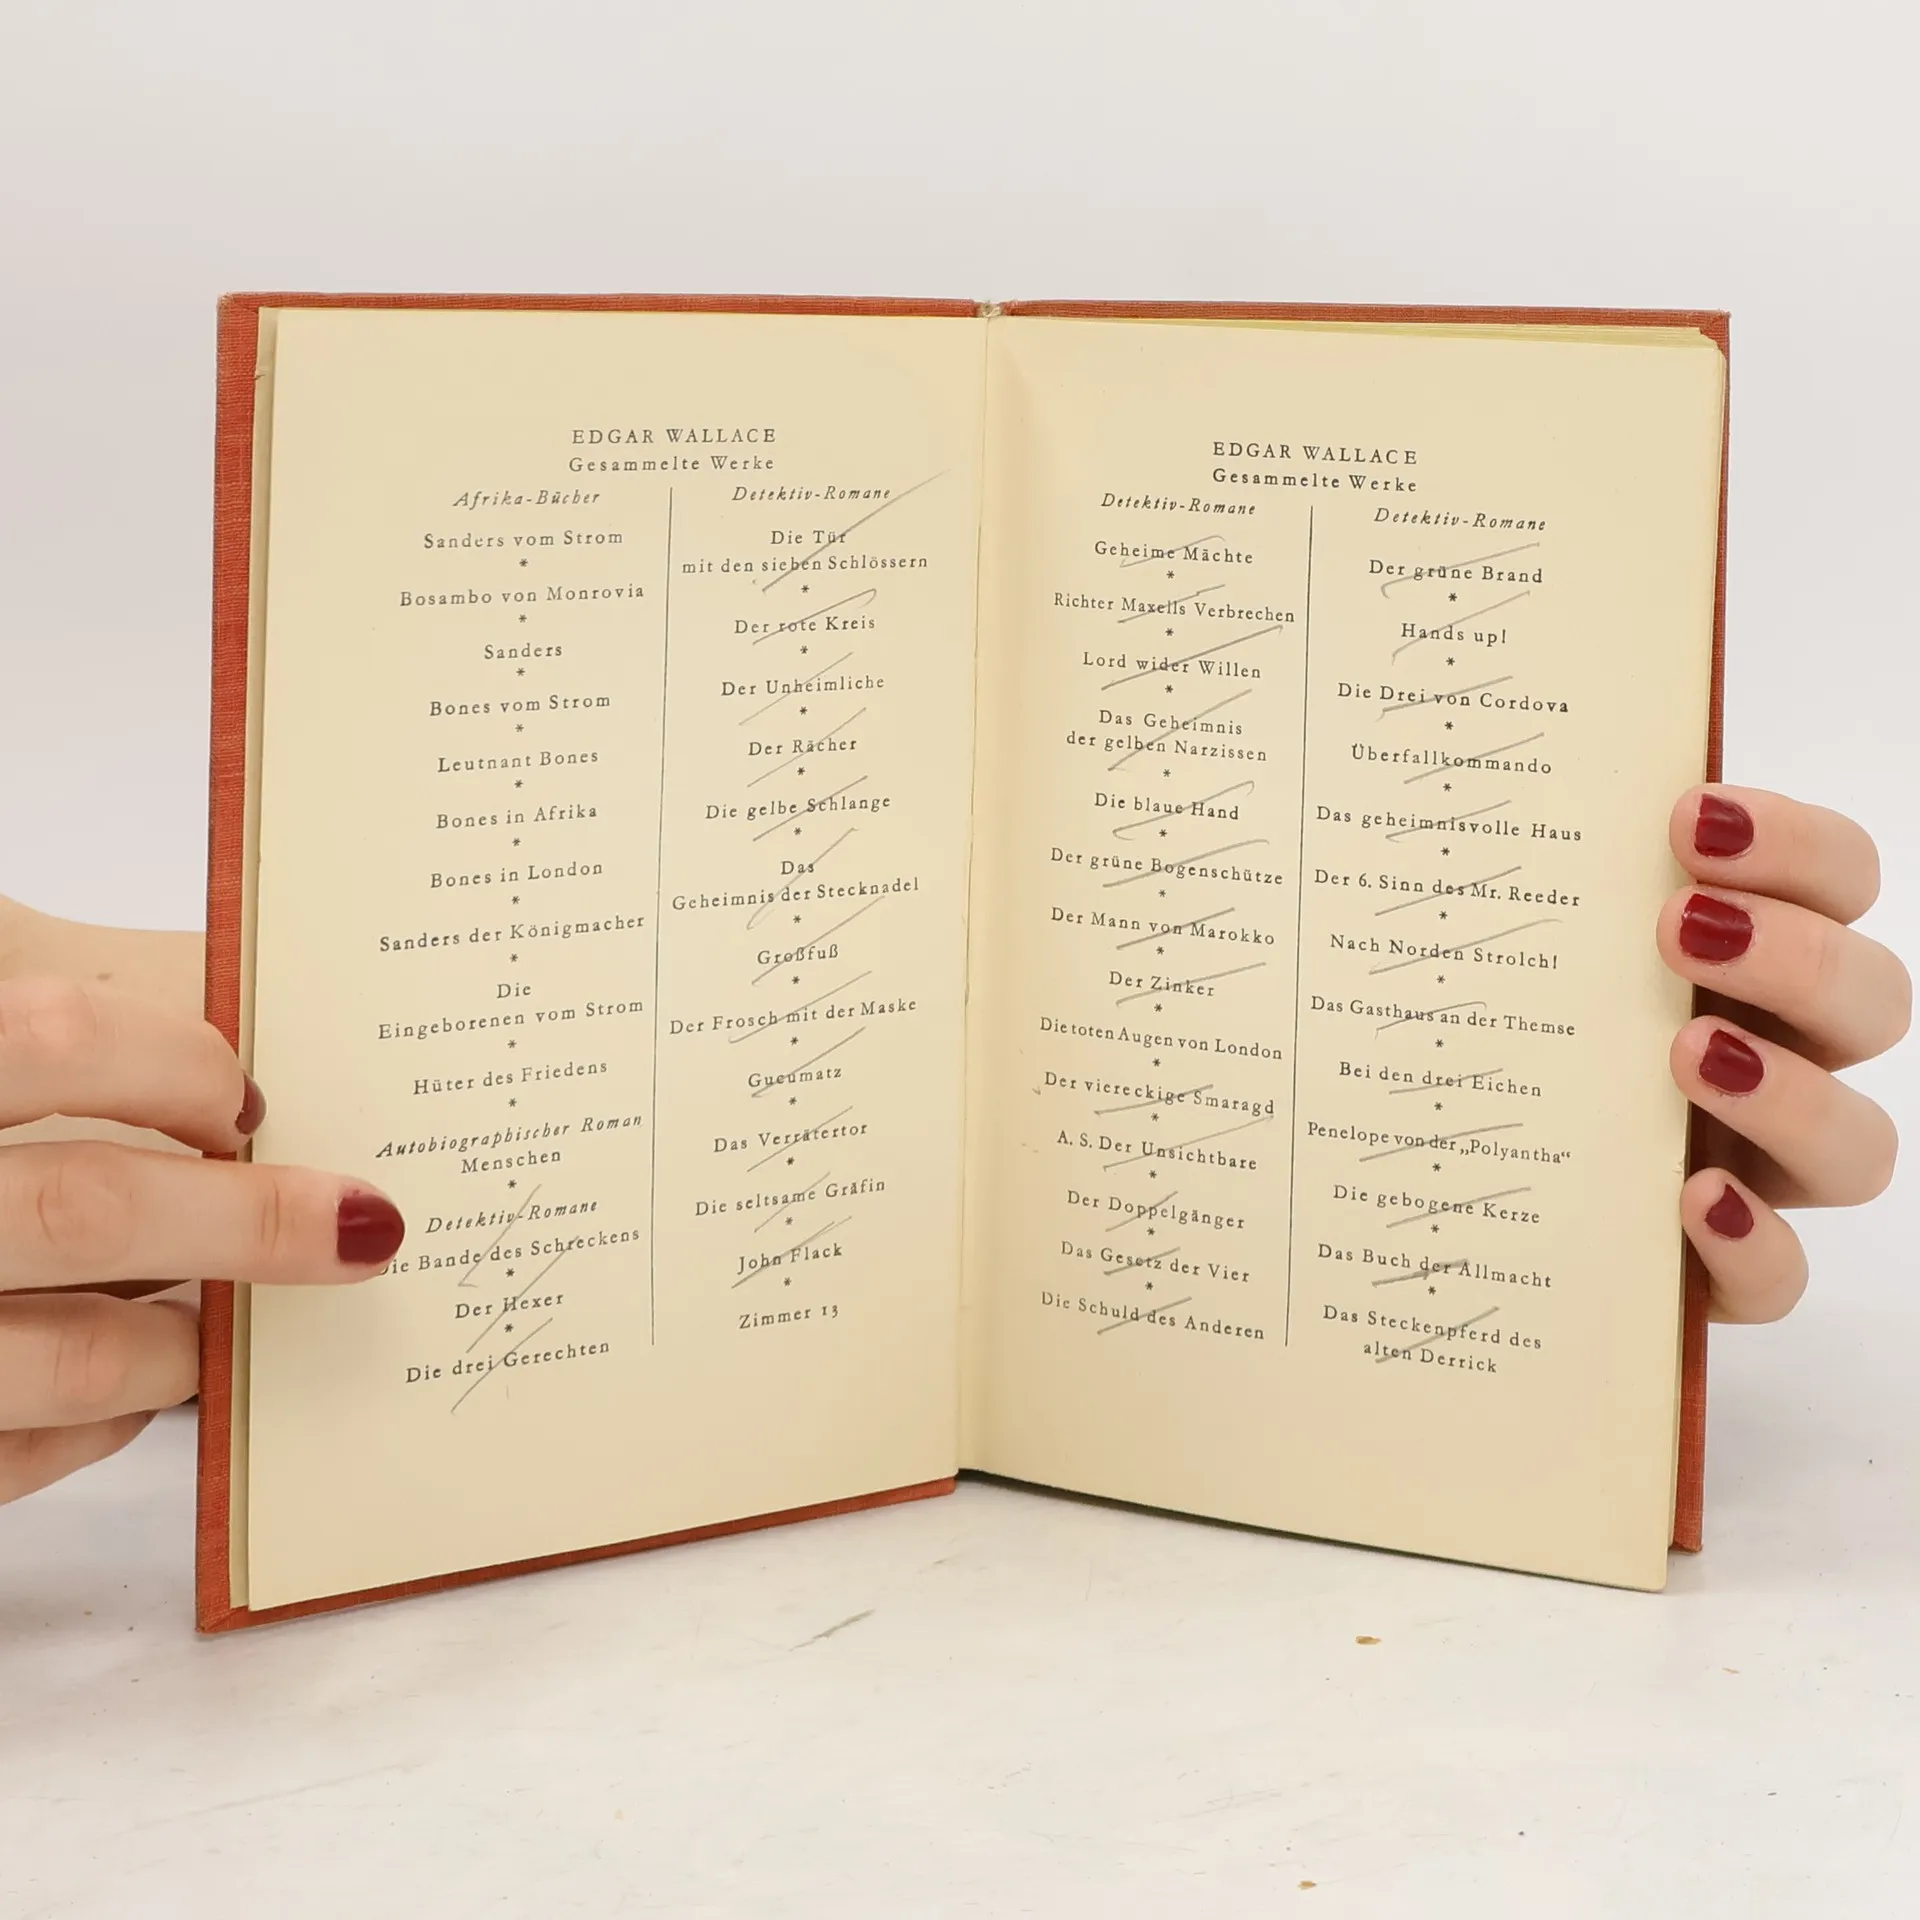 EDGAR WALLACE
Gesammelte Werke
Afrika-Bücher
Sanders vom Strom
*
Bosambo von Monrovia
*
Sanders
*
Bones vom Strom
*
Leutnant Bones
*
Bones in Afrika
*
Bones in London
*
Sanders der Königmacher
*
Die
Eingeborenen vom Strom
*
Hüter des Friedens
*
Autobiographischer Roman
Menschen
*
Detektiv-Romane
Die Bande des Schreckens
*
Der Hexer
*
Die drei Gerechten
Detektiv-Romane
Die Tür
mit den sieben Schlössern
*
Der rote Kreis
*
Der Unheimliche
*
Der Rächer
*
Die gelbe Schlange
*
Das
Geheimnis der Stecknadel
*
Großfuß
*
Der Frosch mit der Maske
*
Gucumatz
*
Das Verrätertor
*
Die seltsame Gräfin
*
John Flack
*
Zimmer 13
EDGAR WALLACE
Gesammelte Werke
Detektiv-Romane
Geheime Mächte
*
Richter Maxells Verbrechen
*
Lord wider Willen
*
Das Geheimnis
der gelben Narzissen
*
Die blaue Hand
*
Der grüne Bogenschütze
*
Der Mann von Marokko
*
Der Zinker
*
Die toten Augen von London
*
Der viereckige Smaragd
*
A. S. Der Unsichtbare
*
Der Doppelgänger
*
Das Gesetz der Vier
*
Die Schuld des Anderen
Detektiv-Romane
Der grüne Brand
*
Hands up!
*
Die Drei von Cordova
*
Überfallkommando
*
Das geheimnisvolle Haus
*
Der 6. Sinn des Mr. Reeder
*
Nach Norden Strolch!
*
Das Gasthaus an der Themse
*
Bei den drei Eichen
*
Penelope von der „Polyantha“
*
Die gebogene Kerze
*
Das Buch der Allmacht
*
Das Steckenpferd des
alten Derrick